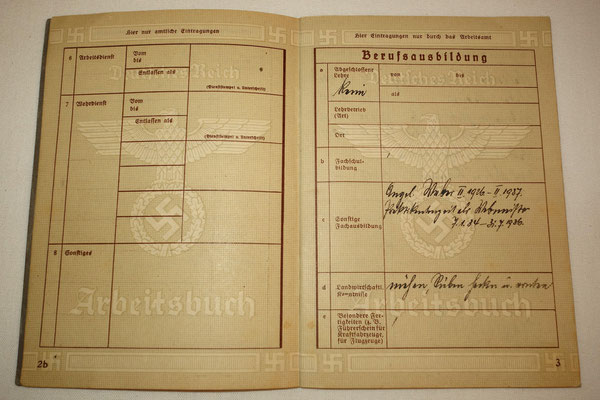 Hier nur amtliche Eintragungen
6 Arbeitsdienst
Vom
bis
Entlassen als
(Dienststempel u. Unterschrift)
7 Wehrdienst
Vom
bis
Entlassen als
(Dienststempel u. Unterschrift)
8 Sonstiges
Deutsches Reich
Arbeitsbuch
2b
Hier Eintragungen nur durch das Arbeitsamt
Berufsausbildung
a Abgeschlossene Lehre
von bis
Keine
als
Lehrbetrieb
(Art)
Ort
b Fachschul-
bildung
Angel. Weber II 1926 - II 1937.
c Sonstige
Fachausbildung
7.1.34 - 31.7.1936.
d Landwirtschaftl.
Kenntnisse
mähen, Rüben hacken u.
e Besondere Fer-
tigkeiten (z. B.
Führerschein für
Kraftfahrzeuge,
für Flugzeuge)
Deutsches Reich
Arbeitsbuch
3